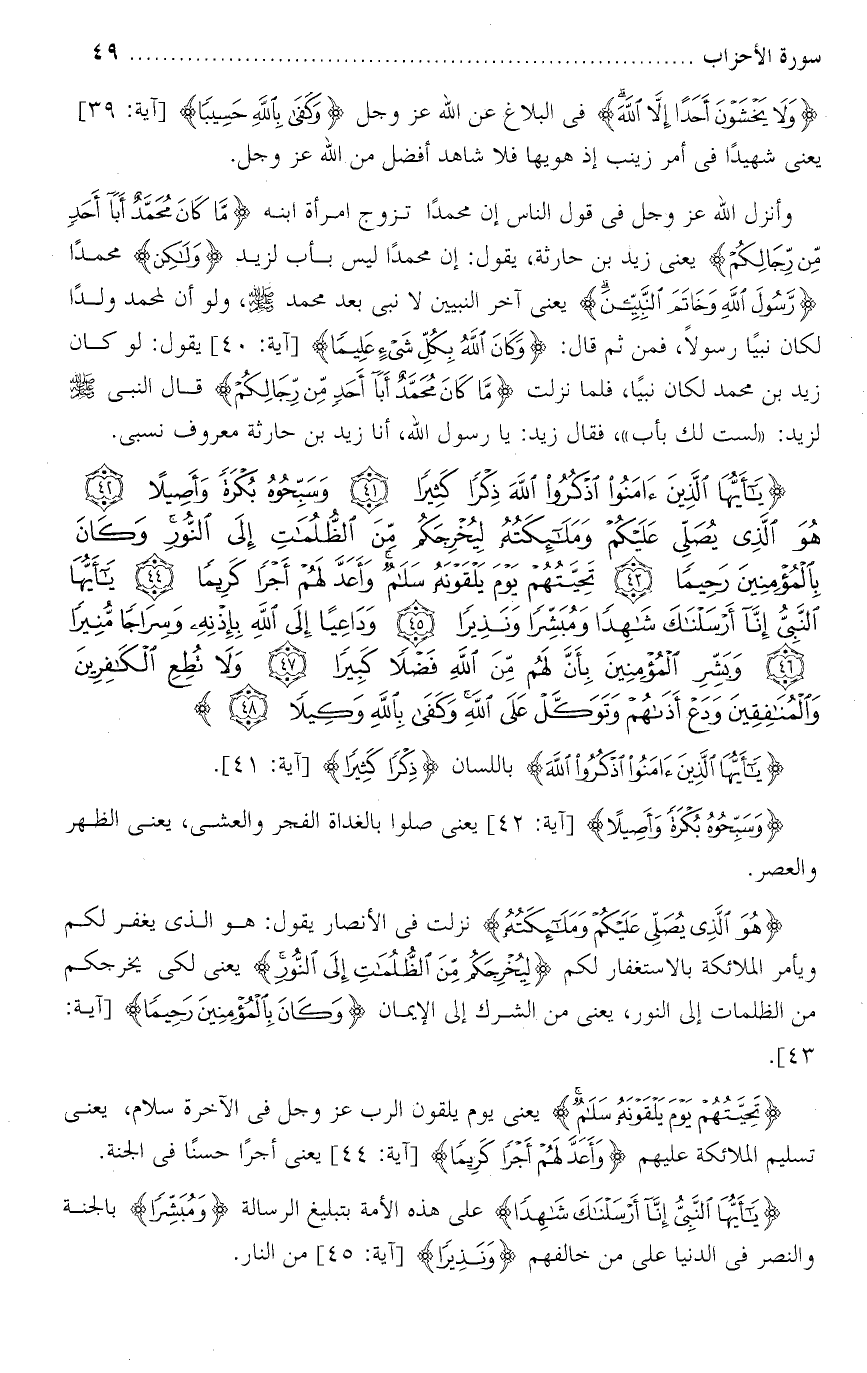 سورة الأحزاب ........................................................................ ٤٩
﴿وَلَا يَخْشَوْنَ أَحَدًا إِلَّا ٱللَّهَۗ﴾ فى البلاغ عن الله عز وجل ﴿وَكَفَىٰ بِٱللَّهِ حَسِيبًا﴾ [آية: ٣٩]
يعنى شهيدًا فى أمر زينب إذ هويها فلا شاهد أفضل من الله عز وجل.
وأنزل الله عز وجل فى قول الناس إن محمدًا تزوج امرأة ابنه ﴿مَّا كَانَ مُحَمَّدٌ أَبَآ أَحَدٍ
مِّن رِّجَالِكُمْ﴾ يعنى زيد بن حارثة، يقول: إن محمدًا ليس بأب لزيد ﴿وَلَٰكِن﴾ محمدًا
﴿رَّسُولَ ٱللَّهِ وَخَاتَمَ ٱلنَّبِيِّـۧنَۗ﴾ يعنى آخر النبيين لا نبى بعد محمد ﷺ، ولو أن لمحمد ولدًا
لكان نبيًا رسولاً، فمن ثم قال: ﴿وَكَانَ ٱللَّهُ بِكُلِّ شَىْءٍ عَلِيمًا﴾ [آية: ٤٠] يقول: لو كان
زيد بن محمد لكان نبيًا، فلما نزلت ﴿مَّا كَانَ مُحَمَّدٌ أَبَآ أَحَدٍ مِّن رِّجَالِكُمْ﴾ قال النبى ﷺ
لزيد: «لست لك بأب»، فقال زيد: يا رسول الله، أنا زيد بن حارثة معروف نسبى.
﴿يَٰٓأَيُّهَا ٱلَّذِينَ ءَامَنُوا۟ ٱذْكُرُوا۟ ٱللَّهَ ذِكْرًا كَثِيرًا ٤١ وَسَبِّحُوهُ بُكْرَةً وَأَصِيلًا ٤٢
هُوَ ٱلَّذِى يُصَلِّى عَلَيْكُمْ وَمَلَٰٓئِكَتُهُۥ لِيُخْرِجَكُم مِّنَ ٱلظُّلُمَٰتِ إِلَى ٱلنُّورِۚ وَكَانَ
بِٱلْمُؤْمِنِينَ رَحِيمًا ٤٣ تَحِيَّتُهُمْ يَوْمَ يَلْقَوْنَهُۥ سَلَٰمٌۚ وَأَعَدَّ لَهُمْ أَجْرًا كَرِيمًا ٤٤ يَٰٓأَيُّهَا
ٱلنَّبِىُّ إِنَّآ أَرْسَلْنَٰكَ شَٰهِدًا وَمُبَشِّرًا وَنَذِيرًا ٤٥ وَدَاعِيًا إِلَى ٱللَّهِ بِإِذْنِهِۦ وَسِرَاجًا مُّنِيرًا
٤٦ وَبَشِّرِ ٱلْمُؤْمِنِينَ بِأَنَّ لَهُم مِّنَ ٱللَّهِ فَضْلًا كَبِيرًا ٤٧ وَلَا تُطِعِ ٱلْكَٰفِرِينَ
وَٱلْمُنَٰفِقِينَ وَدَعْ أَذَىٰهُمْ وَتَوَكَّلْ عَلَى ٱللَّهِۚ وَكَفَىٰ بِٱللَّهِ وَكِيلًا ٤٨ ﴾
﴿يَٰٓأَيُّهَا ٱلَّذِينَ ءَامَنُوا۟ ٱذْكُرُوا۟ ٱللَّهَ﴾ باللسان ﴿ذِكْرًا كَثِيرًا﴾ [آية: ٤١].
﴿وَسَبِّحُوهُ بُكْرَةً وَأَصِيلًا﴾ [آية: ٤٢] يعنى صلوا بالغداة الفجر والعشى، يعنى الظهر
والعصر.
﴿هُوَ ٱلَّذِى يُصَلِّى عَلَيْكُمْ وَمَلَٰٓئِكَتُهُۥ﴾ نزلت فى الأنصار يقول: هو الذى يغفر لكم
ويأمر الملائكة بالاستغفار لكم ﴿لِيُخْرِجَكُم مِّنَ ٱلظُّلُمَٰتِ إِلَى ٱلنُّورِۚ﴾ يعنى لكى يخرجكم
من الظلمات إلى النور، يعنى من الشرك إلى الإيمان ﴿وَكَانَ بِٱلْمُؤْمِنِينَ رَحِيمًا﴾ [آية:
٤٣].
﴿تَحِيَّتُهُمْ يَوْمَ يَلْقَوْنَهُۥ سَلَٰمٌۚ﴾ يعنى يوم يلقون الرب عز وجل فى الآخرة سلام، يعنى
تسليم الملائكة عليهم ﴿وَأَعَدَّ لَهُمْ أَجْرًا كَرِيمًا﴾ [آية: ٤٤] يعنى أجرًا حسنًا فى الجنة.
﴿يَٰٓأَيُّهَا ٱلنَّبِىُّ إِنَّآ أَرْسَلْنَٰكَ شَٰهِدًا﴾ على هذه الأمة بتبليغ الرسالة ﴿وَمُبَشِّرًا﴾ بالجنة
والنصر فى الدنيا على من خالفهم ﴿وَنَذِيرًا﴾ [آية: ٤٥] من النار.